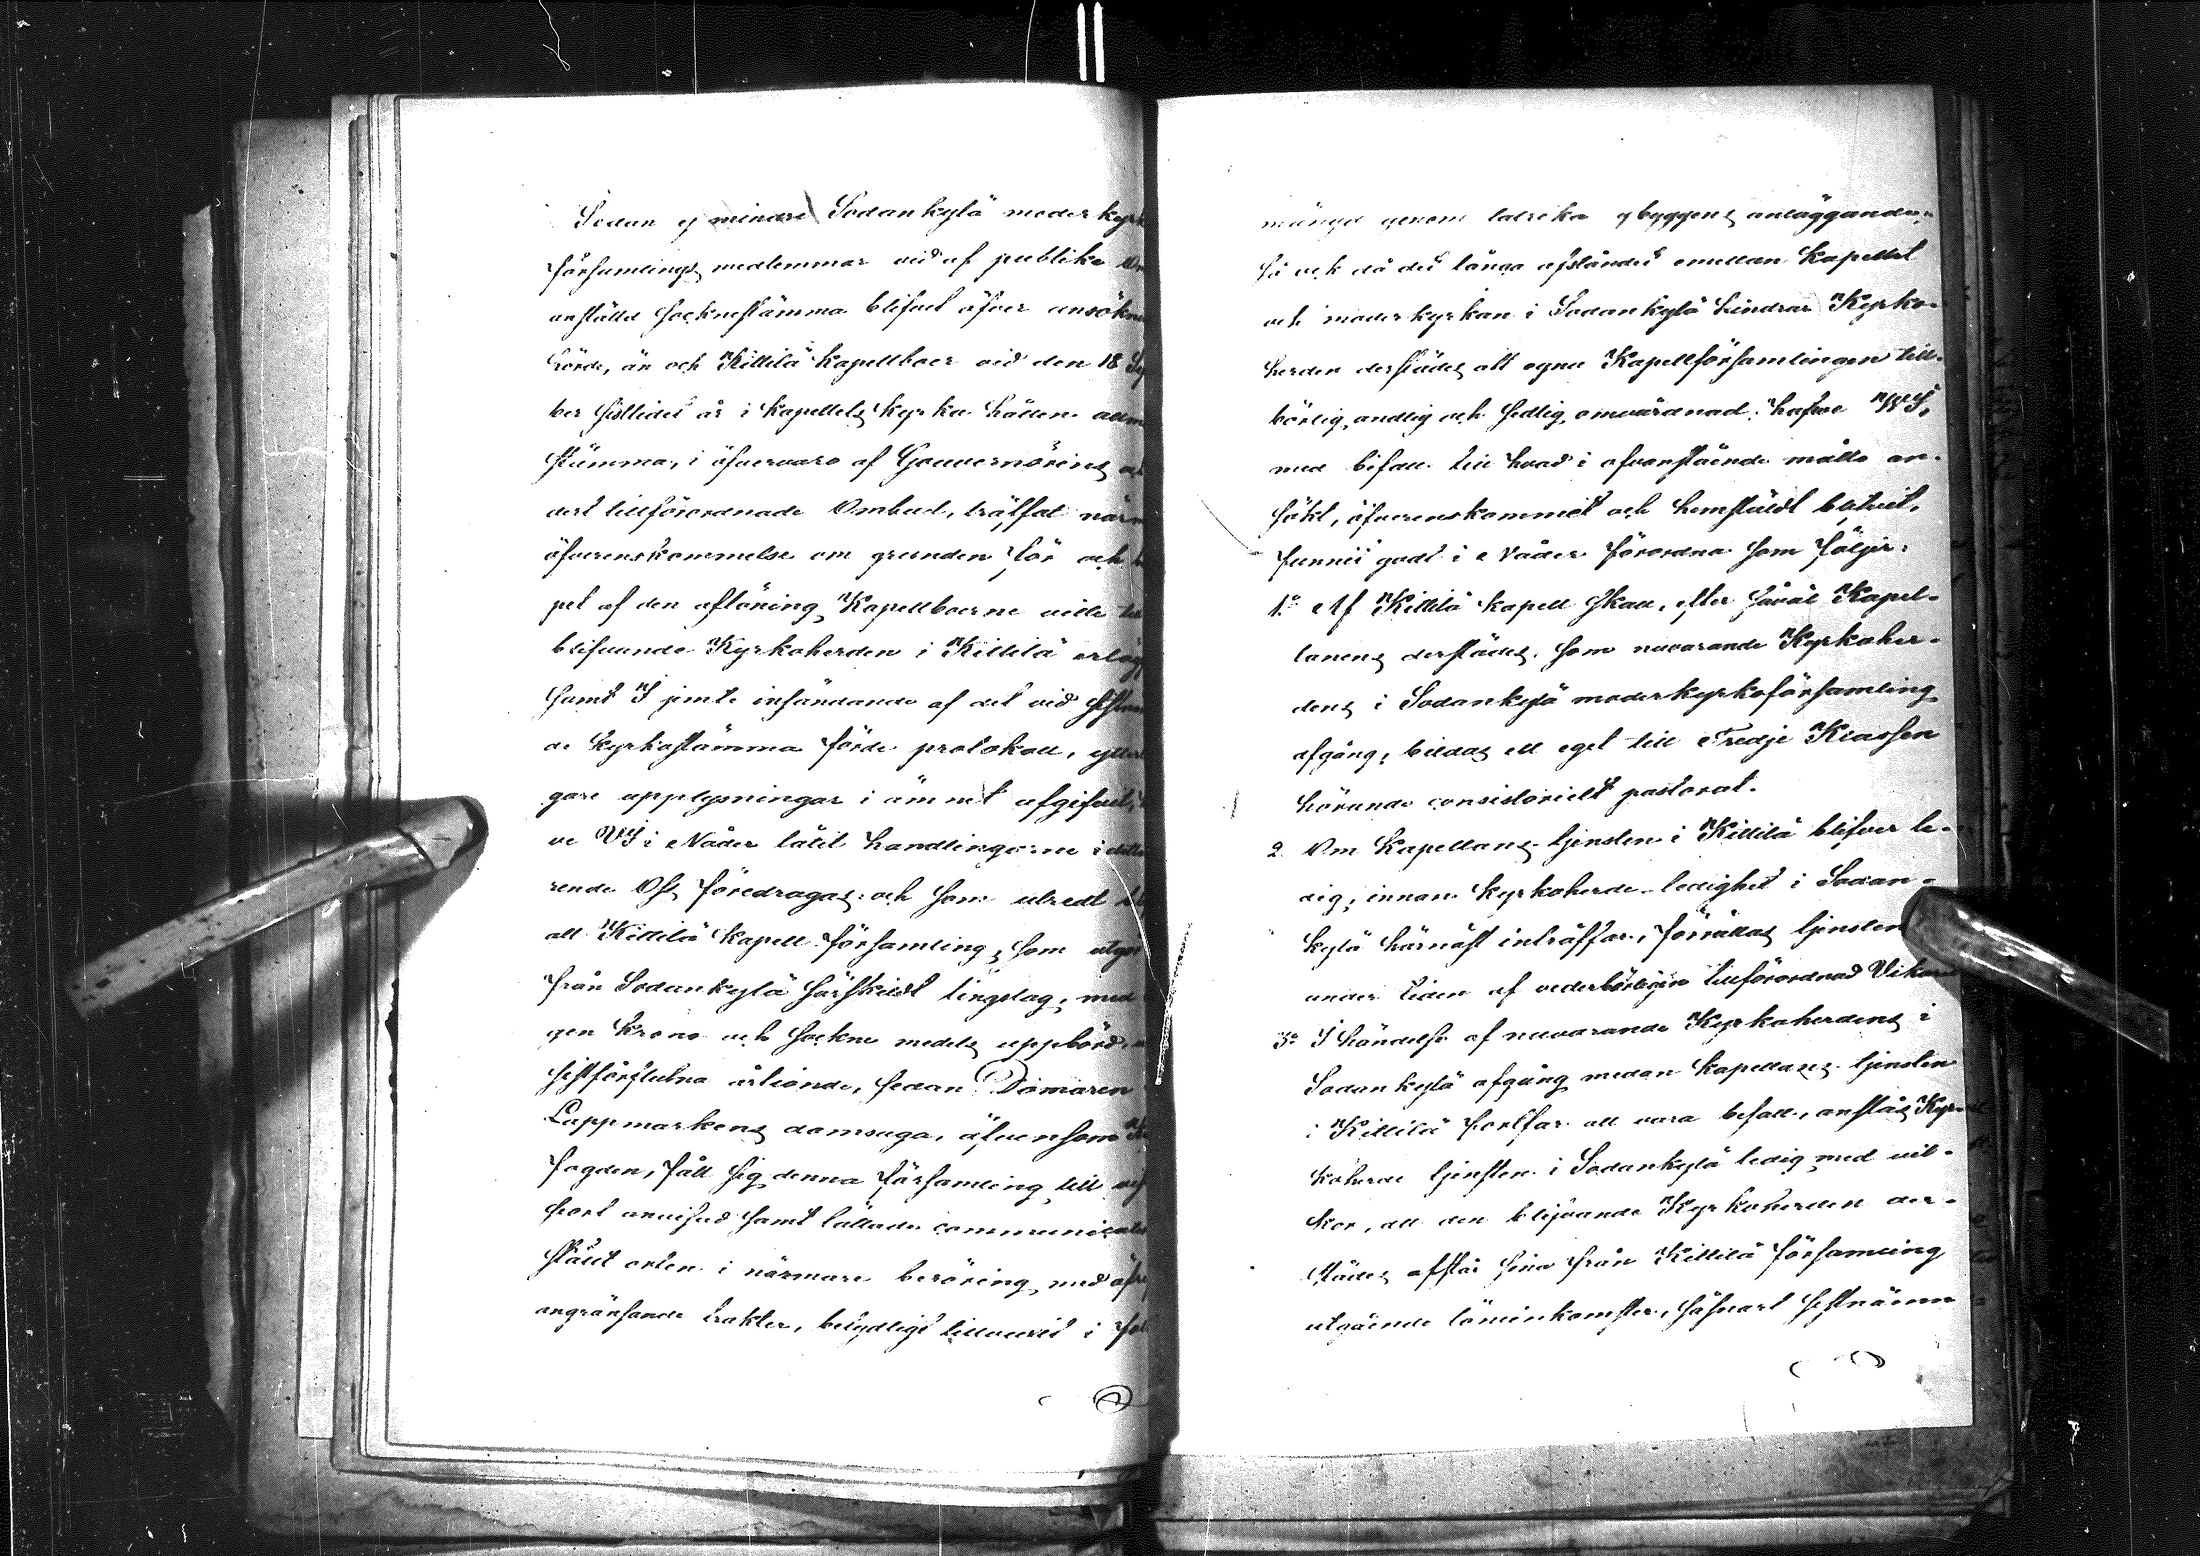 Sedan ej mindre Sodankylä moderkyrk
församlings medlemmar vid af publike
anstäld socknestämma blifvit öfver ansökn
hörde, än och Kittilä Kapellboer vid den 18
ber sistlidet år i Kapellets kyrka hållen
stämma, i öfvervaro af Gouvernörens
dert tillförordnade Ombud, träffat när
öfverenskommelse om grunden för och
pet af den aflöning, Kapellboerne ville
blifvande Kyrkoherden i Kittilä erläg
samt I jemte insändande af det vid
de Kyrkostämma förde protokoll, ytter
gare upplysningar i ämnet afgifvit,
ve VI i Nåder låtit handlingarne i
rende Oss föredragas: och som utredt
att Kittilä Kapell församling, som utgör
från Sodankylä särskildt tingslag, med
gen Krono och Sockne medels uppbörd,
sistförflutna årtionde, sedan Domaren
Lappmarkens domsaga, äfvensom
fogden, fått sig denna församling till
fort anvisad samt lättade communicat
stält orten i närmare beröring med
angränsande trakter, betydligt tillvuxit i
mängd genom talrika nybyggens anläggande,
så och då det långa afståndet emellan Kapellet
och moderkyrkan i Sodankylä hindrar Kyrko-
herden derstädes att egna Kapellförsamlingen till-
börlig, andlig och sedlig, omvårdnad: hafve WI,
med bifall till hvad i ofvanstående måtto an-
sökt, öfverenskommit och hemstäldt blifvit,
funnit godt i Nåder förordna som följer:
1:o Af Kittilä Kapell skall, efter såväl Kapel-
lanens derstädes, som nuvarande Kyrkoher-
dens i Sodankylä moderkyrkoförsamling
afgång, bildas ett eget till Tredje Klassen
hörande consistorielt pastorat.
2 Om Kapellans tjensten i Kittilä blifver le-
dig, innan Kyrkoherde ledighet i Sodan-
kylä härnäst inträffar, förrättas tjensten
under tiden af vederbörligen tillförordnad Vikarie
3:o I händelse af nuvarande Kyrkoherdens i
Sodankylä afgång medan Kapellans tjensten
i Kittilä fortfar att vara besatt, anslås Kyr-
koherde tjensten i Sodankylä ledig med vil-
kor, att den blifvande Kyrkoherden der-
städes afstår sina från Kittilä församling
utgående löninkomster, såsnart sistnämn